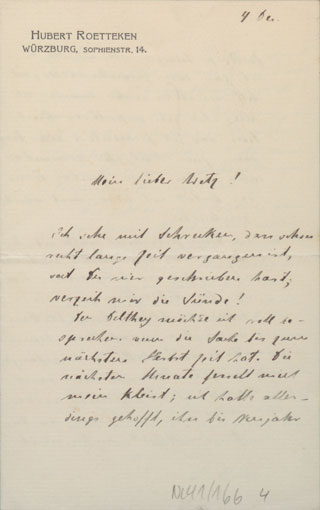 4 Dec.
HUBERT ROETTEKEN
WÜRZBURG, SOPHIENSTR. 14.
Mein lieber Witz!
Ich sehe mit Schrecken, dass schon
recht lange Zeit vergangen ist,
seit Du mir geschrieben hast;
verzeih mir die Sünde!
Den Dilthey möchte ich wohl be-
sprechen, wenn die Sache bis zum
nächsten Herbst Zeit hat. Die
nächsten Monate fesselt mich
mein Kleist; ich hatte aller-
dings gehofft, ihn bis Neujahr
NL41/166 4